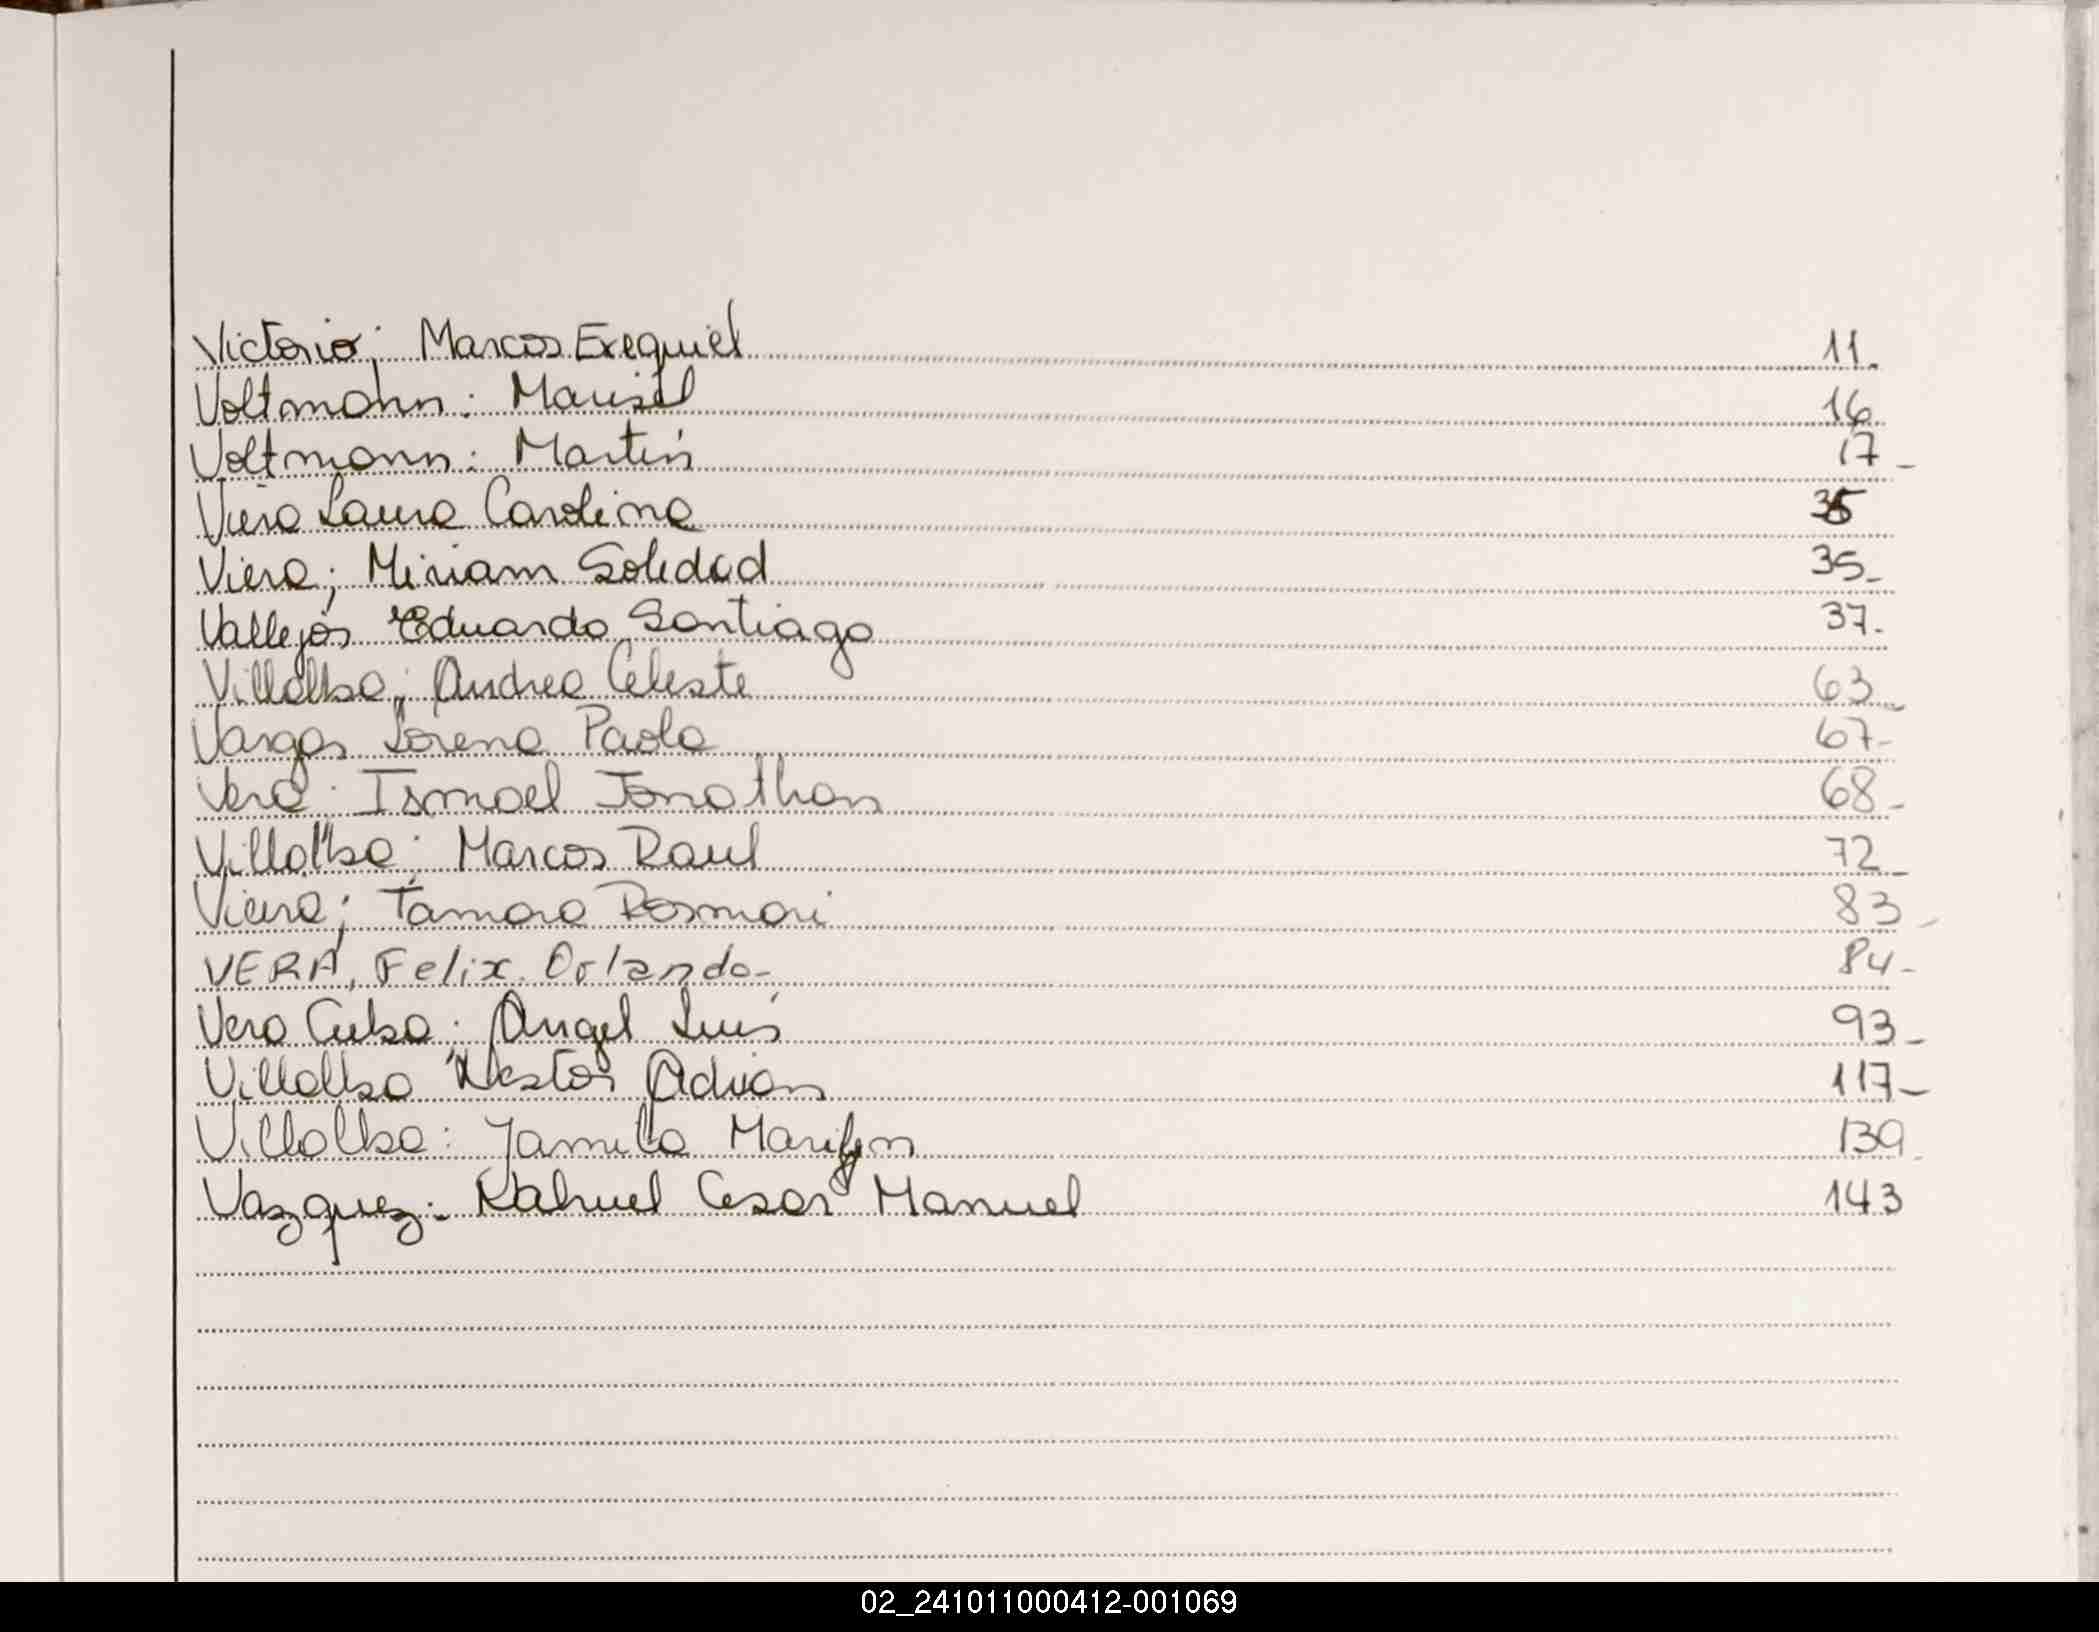 Victorio; Marcos Exequiel 11.
Voltmann: Marisel 16
Voltmann: Martín 17-
Viera Laura Carolina 35
Viera; Miriam Soledad 35-
Vallejos Eduardo Santiago 37.
Villalba; Andrea Celeste 63-
Vargas Lorena Paola 67-
Vera: Ismael Jonathan 68-
Villalba: Marcos Raul 72-
Viera; Tamara Rosmari 83-
VERA, Felix Orlando- 84-
Vera Cuba: Angel Luís 93-
Villalba Nestor Adrian 117-
Villalba: Yamila 139.
Vazquez: Nahuel Cesar Manuel 143
02_241011000412-001069